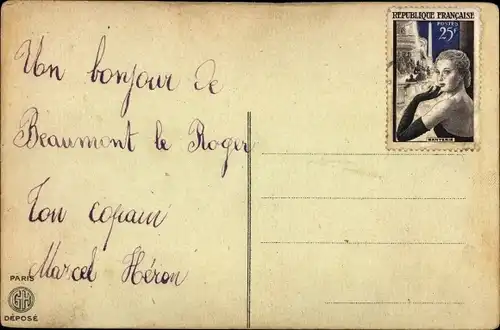 RÉPUBLIQUE FRANÇAISE
POSTES
25F
GANTERIE
Un bonjour de
Beaumont le Roger
Ton copain
Marcel Héron
PARIS
DÉPOSÉ